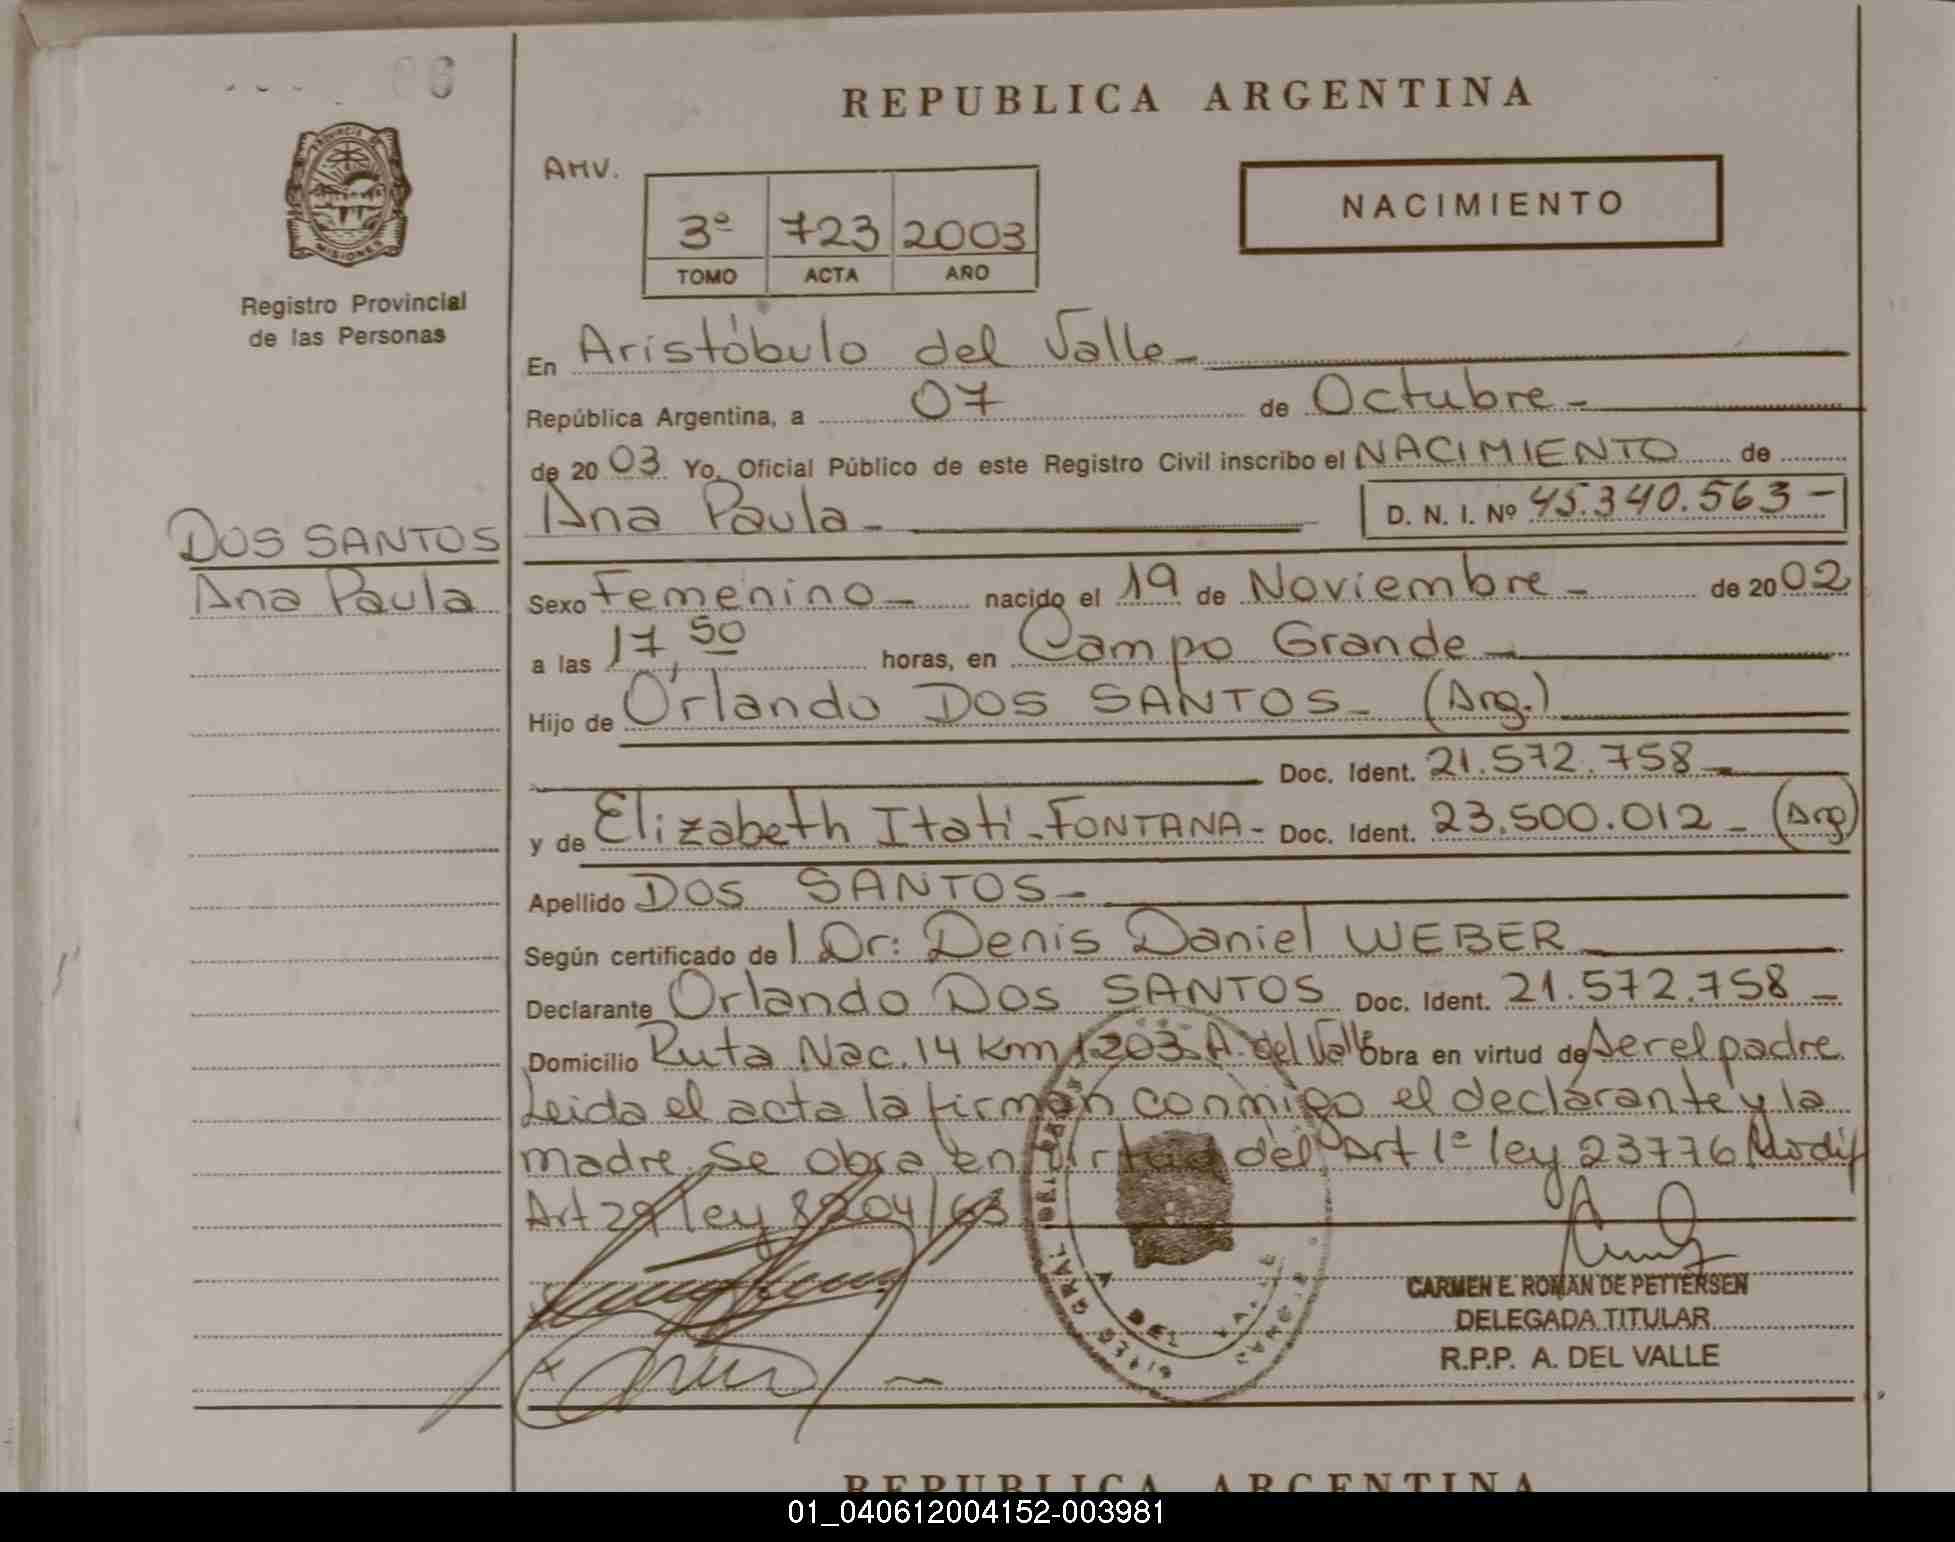 REPUBLICA ARGENTINA
AMV.
3º 723 2003
TOMO ACTA AÑO
NACIMIENTO
PROVINCIA DE MISIONES
Registro Provincial
de las Personas
En Aristóbulo del Valle -
República Argentina, a 07 de Octubre -
de 2003 Yo, Oficial Público de este Registro Civil inscribo el NACIMIENTO de
Ana Paula - D. N. I. Nº 45.340.563 -
DOS SANTOS
Ana Paula
Sexo Femenino - nacido el 19 de Noviembre - de 2002
a las 17,50 horas, en Campo Grande -
Hijo de Orlando DOS SANTOS - (Arg.)
Doc. Ident. 21.572.758 -
y de Elizabeth Itatí - FONTANA - Doc. Ident. 23.500.012 - (Arg)
Apellido DOS SANTOS -
Según certificado de l Dr: Denis Daniel WEBER
Declarante Orlando DOS SANTOS Doc. Ident. 21.572.758 -
Domicilio Ruta Nac. 14 Km 1203. A. del Valle Obra en virtud de ser el padre
Leida el acta la firman conmigo el declarante y la
madre. Se obra en virtud del Art 1º ley 23776 Modif
Art 29 ley 8204/63
CARMEN E. ROMAN DE PETTERSEN
DELEGADA TITULAR
R.P.P. A. DEL VALLE
REPUBLICA ARGENTINA
01_040612004152-003981